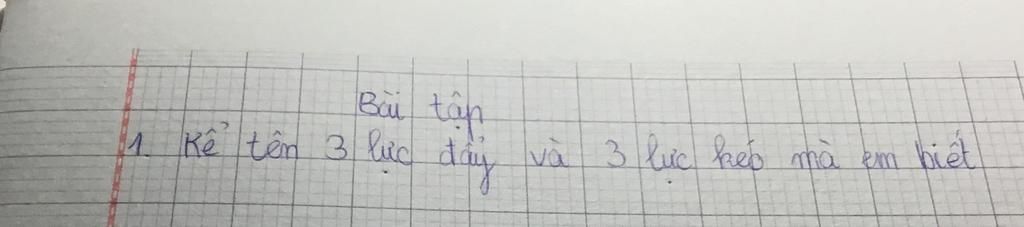 Bài tập
1. Kể tên 3 lực đẩy và 3 lực kéo mà em biết